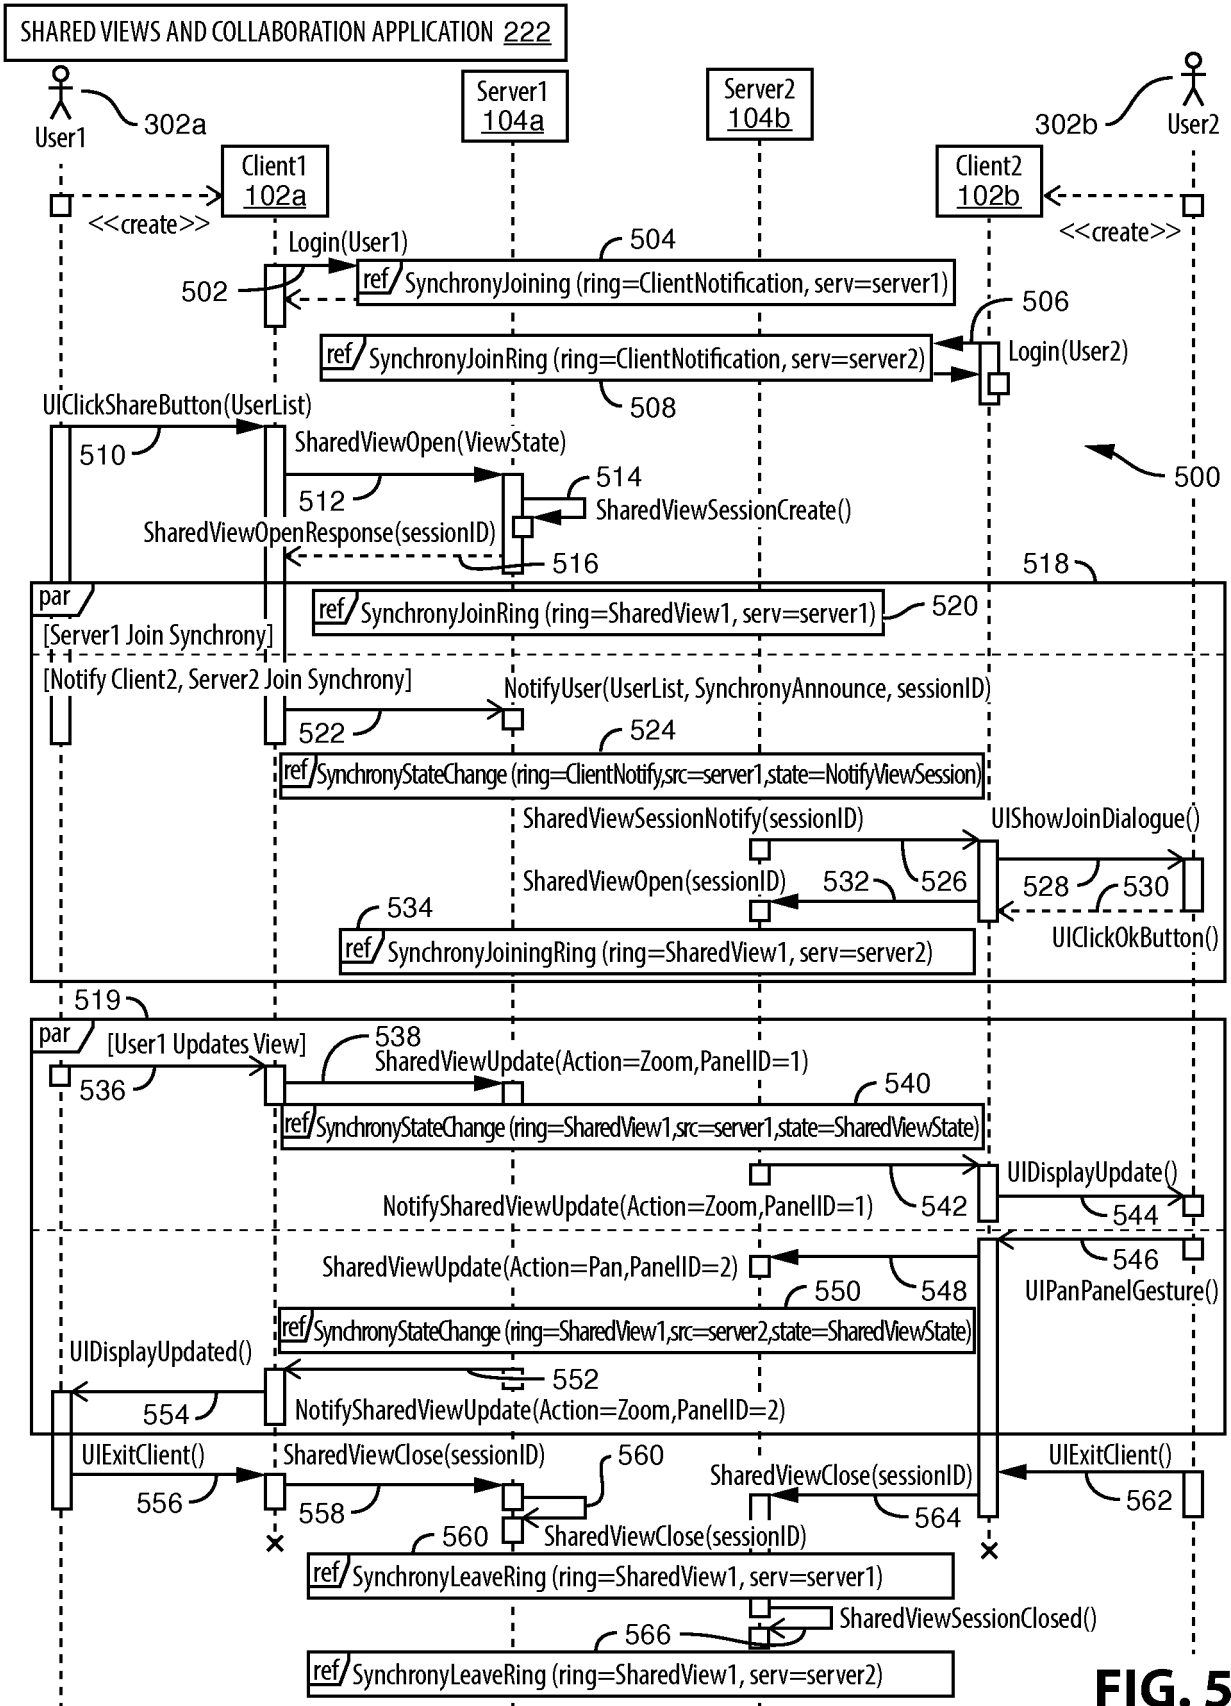 SHARED VIEWS AND COLLABORATION APPLICATION 222
User1
302a
Server1
104a
Server2
104b
302b
User2
Client1
102a
Client2
102b
<<create>>
<<create>>
Login(User1)
504
502
ref SynchronyJoining (ring=ClientNotification, serv=server1)
506
ref SynchronyJoinRing (ring=ClientNotification, serv=server2)
Login(User2)
508
UIClickShareButton(UserList)
510
SharedViewOpen(ViewState)
500
512
514
SharedViewSessionCreate()
SharedViewOpenResponse(sessionID)
516
518
par
ref SynchronyJoinRing (ring=SharedView1, serv=server1)
520
[Server1 Join Synchrony]
[Notify Client2, Server2 Join Synchrony]
NotifyUser(UserList, SynchronyAnnounce, sessionID)
522
524
ref SynchronyStateChange (ring=ClientNotify,src=server1,state=NotifyViewSession)
SharedViewSessionNotify(sessionID)
UIShowJoinDialogue()
SharedViewOpen(sessionID)
532
526
528
530
534
UIClickOkButton()
ref SynchronyJoiningRing (ring=SharedView1, serv=server2)
519
par
[User1 Updates View]
538
SharedViewUpdate(Action=Zoom,PanelID=1)
536
540
ref SynchronyStateChange (ring=SharedView1,src=server1,state=SharedViewState)
UIDisplayUpdate()
NotifySharedViewUpdate(Action=Zoom,PanelID=1)
542
544
546
SharedViewUpdate(Action=Pan,PanelID=2)
548
550
UIPanPanelGesture()
ref SynchronyStateChange (ring=SharedView1,src=server2,state=SharedViewState)
UIDisplayUpdated()
552
554
NotifySharedViewUpdate(Action=Zoom,PanelID=2)
UIExitClient()
SharedViewClose(sessionID)
560
UIExitClient()
SharedViewClose(sessionID)
556
558
564
562
560
SharedViewClose(sessionID)
ref SynchronyLeaveRing (ring=SharedView1, serv=server1)
SharedViewSessionClosed()
566
ref SynchronyLeaveRing (ring=SharedView1, serv=server2)
FIG. 5